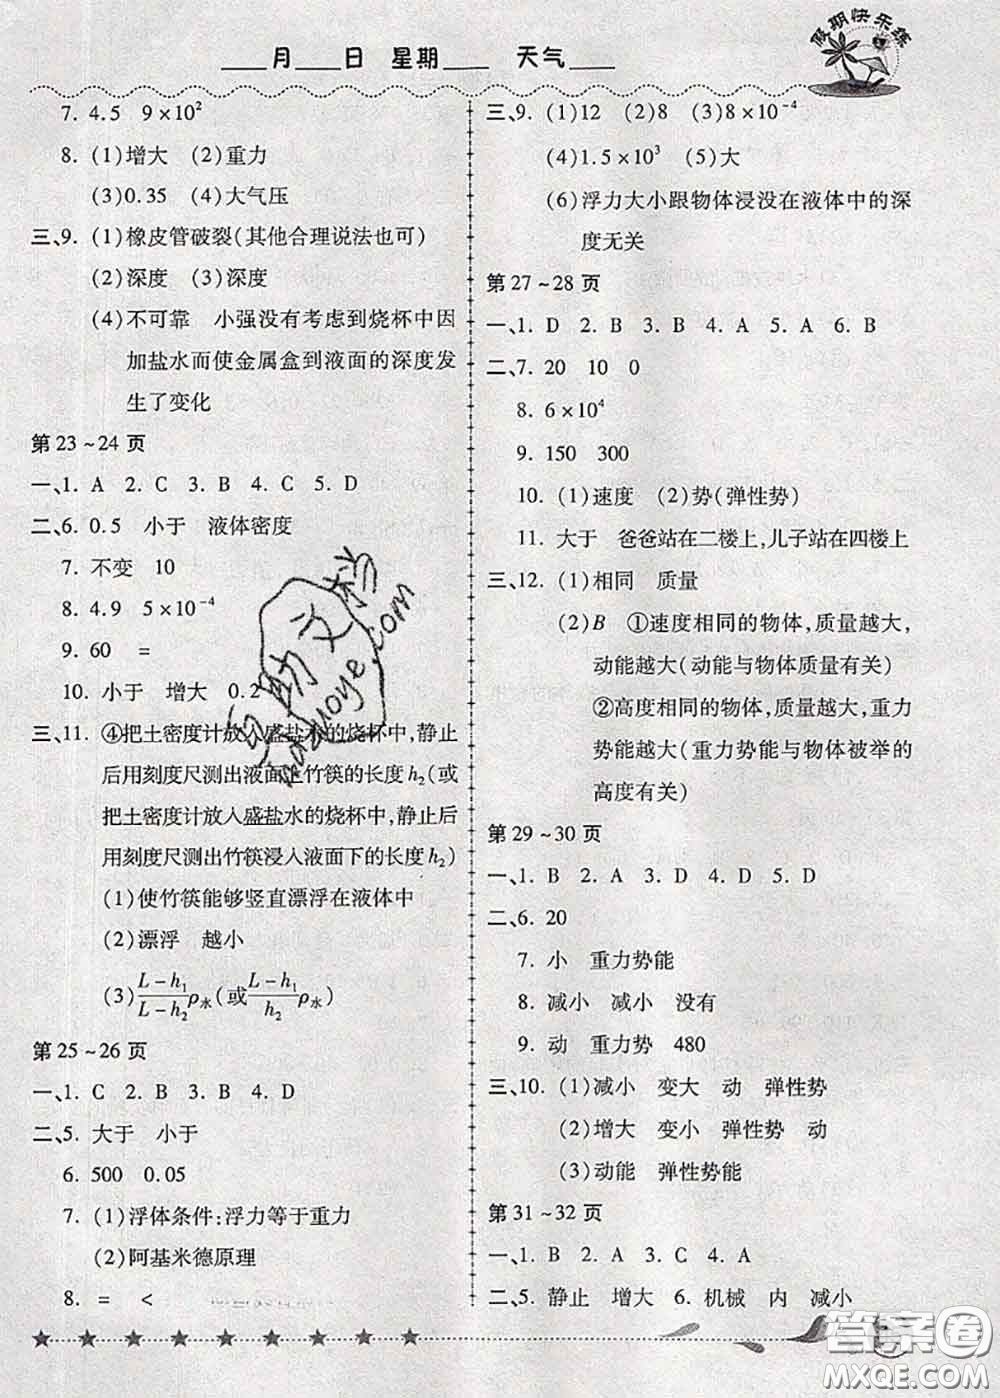 ____月____日 星期____ 天气____
假期快乐练
7. 4.5 9×10²
8. (1)增大 (2)重力
(3)0.35 (4)大气压
三、9. (1)橡皮管破裂(其他合理说法也可)
(2)深度 (3)深度
(4)不可靠 小强没有考虑到烧杯中因
加盐水而使金属盒到液面的深度发
生了变化
第23~24页
一、1. A 2. C 3. B 4. C 5. D
二、6. 0.5 小于 液体密度
7. 不变 10
8. 4.9 5×10⁻⁴
9. 60 =
10. 小于 增大 0.2
三、11. ④把土密度计放入盛盐水的烧杯中,静止
后用刻度尺测出液面上竹筷的长度h₂(或
把土密度计放入盛盐水的烧杯中,静止后
用刻度尺测出竹筷浸入液面下的长度h₂)
(1)使竹筷能够竖直漂浮在液体中
(2)漂浮 越小
(3)(L-h₁)/(L-h₂)ρ水(或(L-h₁)/h₂ρ水)
第25~26页
一、1. C 2. B 3. B 4. D
二、5. 大于 小于
6. 500 0.05
7. (1)浮体条件:浮力等于重力
(2)阿基米德原理
8. = <
三、9. (1)12 (2)8 (3)8×10⁻⁴
(4)1.5×10³ (5)大
(6)浮力大小跟物体浸没在液体中的深
度无关
第27~28页
一、1. D 2. B 3. B 4. A 5. A 6. B
二、7. 20 10 0
8. 6×10⁴
9. 150 300
10. (1)速度 (2)势(弹性势)
11. 大于 爸爸站在二楼上,儿子站在四楼上
三、12. (1)相同 质量
(2)B ①速度相同的物体,质量越大,
动能越大(动能与物体质量有关)
②高度相同的物体,质量越大,重力
势能越大(重力势能与物体被举的
高度有关)
第29~30页
一、1. B 2. A 3. D 4. D 5. D
二、6. 20
7. 小 重力势能
8. 减小 减小 没有
9. 动 重力势 480
三、10. (1)减小 变大 动 弹性势
(2)增大 变小 弹性势 动
(3)动能 弹性势能
第31~32页
一、1. B 2. A 3. C 4. A
二、5. 静止 增大 6. 机械 内 减小
答案圈
MXQE.COM